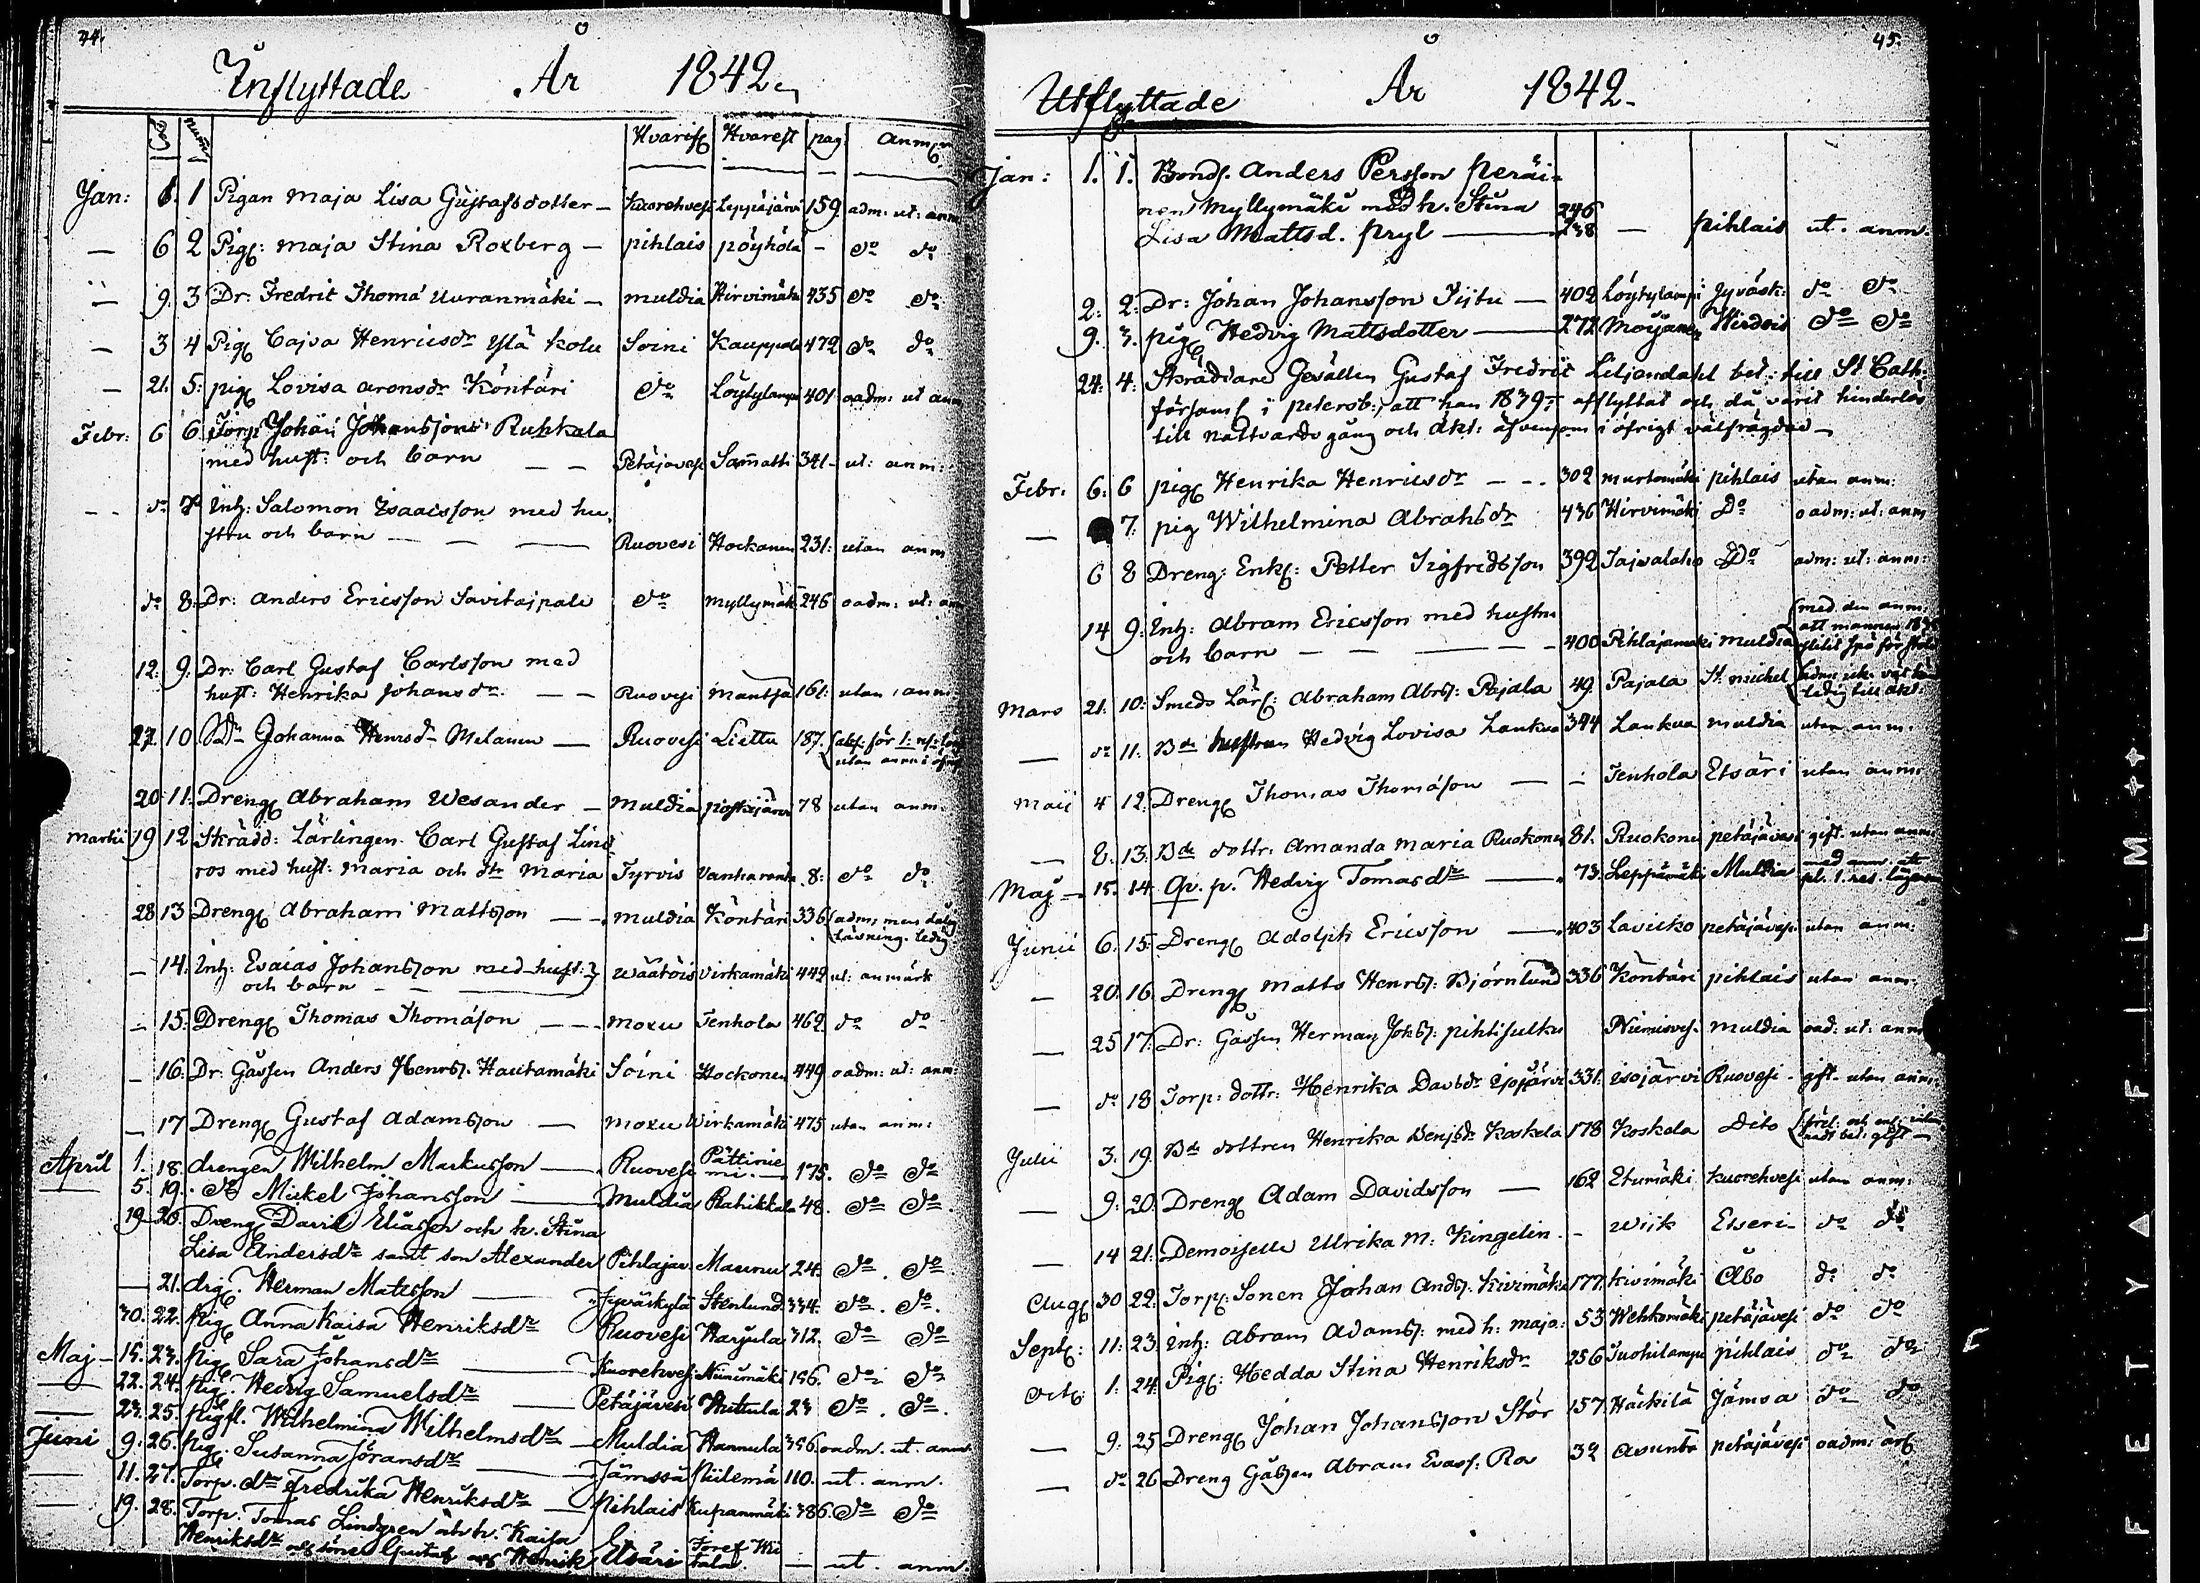 44.
Inflyttade År 1842
Hvarifr Hvarest pag. Anm
Jan: 6. 1 Pigan Maja Lisa Gustafsdotter – Kuorehvesi Leppäjärvi 159 adm: ut: anm
— 6 2 Pig: Maja Stina Roxberg – pihlais pöyhölä – do do
— 9. 3 Dr: Fredric Thomá Uuranmäki – muldia Hirvimäki 435 do do
— 3 4 Pig Cajsa Henricsdr Ylä kolu Soini Kauppala 472 do do
— 21. 5: pig Lovisa Aronsdr Köntäri do Löytylampi 401 oadm: ut anm
Febr: 6 6 Torp Johan Johansson Ruhkala
med hust: och barn — — Petäjävesi Sammatti 341 – ut: anm:
— do 7 Inh: Salomon Isaacsson med hu,
stru och barn — — Ruovesi Hockanen 231: utan anm
do 8: Dr: Anders Ericsson Savitaipale do Myllymäki 246 oadm: ut: anm
12. 9. Dr: Carl Gustaf Carlsson med
hust: Henrika Johansdr — — Ruovesi Mäntsä 161: utan anm
27. 10 Johanna Henrsdr Melanen — Ruovesi Liettu 187. (abs: för 1:
utan anm i öfr
20. 11. Dreng Abraham Wesander – Muldia 78 utan anm:
Martii 19 12 Skrädd: Lärlingen Carl Gustaf Lind
ros med hust: Maria och dtr Maria Tyrvis Vanharanta 8: do do
28 13 Dreng Abraham Mattsson — — Muldia Köntäri 336 (adm: men dålig
läsning. ledig
— 14: Inh: Esaias Johansson med hust:
och barn — — — Wäätöis Virkamäki 442 ut: anmärk
— 15: Dreng Thomas Thomáson — — Moxu Tenhola 462 do do
— 16: Dr: Gåssen Anders Henrss. Hautamäki Soini Hockonen 449 oadm: ut: anm:
— 17 Dreng Gustaf Adamsson — Moxu Wirkamäki 475 utan anm:
April 1. 18. drengen Wilhelm Markusson — Ruovesi Pättinie
mi. — 175. do do
5. 19. do Mickel Johansson — Muldia Rahikkala 48. do do.
19 20. Dreng David Eliasson och h. Stina
Lisa Andersdr samt son Alexander Pihlajav Maunu 24. do. do
— 21. drg. Herman Matsson — Jyväskylä Stenlund 334. do. do.
30. 22. Pig Anna Kaisa Henriksdr Ruovesi Harjula 312. do do
Maj – 15. 23. Pig Sara Johansdr — Kuorehvesi Niinimäki 156. do do
— 22. 24. Pig. Hedvig Samuelsdr — Petäjävesi Huttula 23 do. do.
— 23. 25. Pigfl. Wilhelmina Wilhelmsdr – Muldia Hannula 356. oadm. ut. anm.
Juni 9. 26. Pig. Susanna Jöransdr — Jämssä Niilemä 110. ut. anm.
— 11. 27. Torp. dr Fredrika Henriksdr — Pihlais Kupanmäki 386. do do
— 19. 28. Torp. Tomas Lindgren och h. Kaisa
Henriksdr och söner Gustaf och Henrik Etsäri Josef Wii
tala. — ut. anm.
45.
Utflyttade År 1842.
Jan: 1. 1. Bonds. Anders Persson Peräi-
nen Myllymäki med h. Stina 246
Lisa Mattsd. Pryl — 238 — pihlais ut. anm.
2: 2: Dr: Johan Johansson Tijtu — 402 Löytylampi Jyväsk: do do
9. 3. pig Hedvig Mattsdotter — 272 Möijänen Wirdois do do
24: 4. Skräddare Gesällen Gustaf Fredric Liljendahl bet: till St Cath:
församl i petersb:, att han 1839 afflyttat och då varit hinderlös
till nattvards gång och äkt: äfvensom i öfrigt välfrägdad –
Febr. 6. 6 pig Henrika Henricsdr – – 302 murtomäki pihlais utan anm:
— 7. pig Wilhelmina Abrahsdr 436 Hirvimäki Do oadm: ut: anm
6 8 Dreng: Enkl: Petter Sigfredsson 392 Taivalaho Do adm: ut: anm:
14 9: Inh: Abram Ericsson med hustru (med den anm.
att mannen
och barn — — — 400 Pihlajamäki Muldia
Mars 21: 10: Smeds Lärl: Abraham Abrss: Pajala 49. Pajala St. michel
ledig till äkt:
— do 11: Bde hustrun Hedvig Lovisa Lankua 344 Lankua muldia utan anm.
Maii 4 12: Dreng Thomas Thomáson — – Tenhola Etsäri utan anm:
— 8. 13. Bde dottr. Amanda Maria Ruokonen 81. Ruokonen petäjävesi gift. utan anm:
Maj – 15. 14. Qv. p. Hedvig Tomasdr — 73. Leppämäki Muldia med anm. att
pl. 1. res. lägersm
Junii 6. 15. Dreng Adolph Ericsson — 403 Lavicko petäjävesi utan anm:
— 20. 16. Dreng Matts Henrss: Björnlund 336 Köntäri pihlais utan anm:
— 25 17: Dr: Gåssen Herman Johss: pihtisulku Niemisves. muldia oad: ut: anm
— do 18 Torp: dottr: Henrika Davsdr Isojärvi 331: Isojärvi Ruovesi – gift – utan anm:
Julii 3. 19. Bde dottren Henrika Benjsdr Koskela 178 Koskela Dito
gift –
— 9: 20: Dreng Adam Davidsson — 162 Etumäki Kuorehvesi utan anm:
— 14 21: Demoiselle Ulrika M: Kingelin – – Wiik Etseri – do do
Aug 30 22: Torp: Sonen Johan Andss. Kivimäki 177. Kivimäki Åbo do do
Sept: 11: 23. Inh: Abram Adamss: med h: maja: 53 Wehkomäki petäjävesi do do
Oct: 1: 24. Pig: Hedda Stina Henriksdr 256 Suohilampi pihlais do do
— 9: 25 Dreng Johan Johansson Stör 157. Häckilä Jämsa do do
— do 26 Dreng Gåssen Abram Evass: Ro 32 Asunta petäjävesi oadm:
FETYA FILM